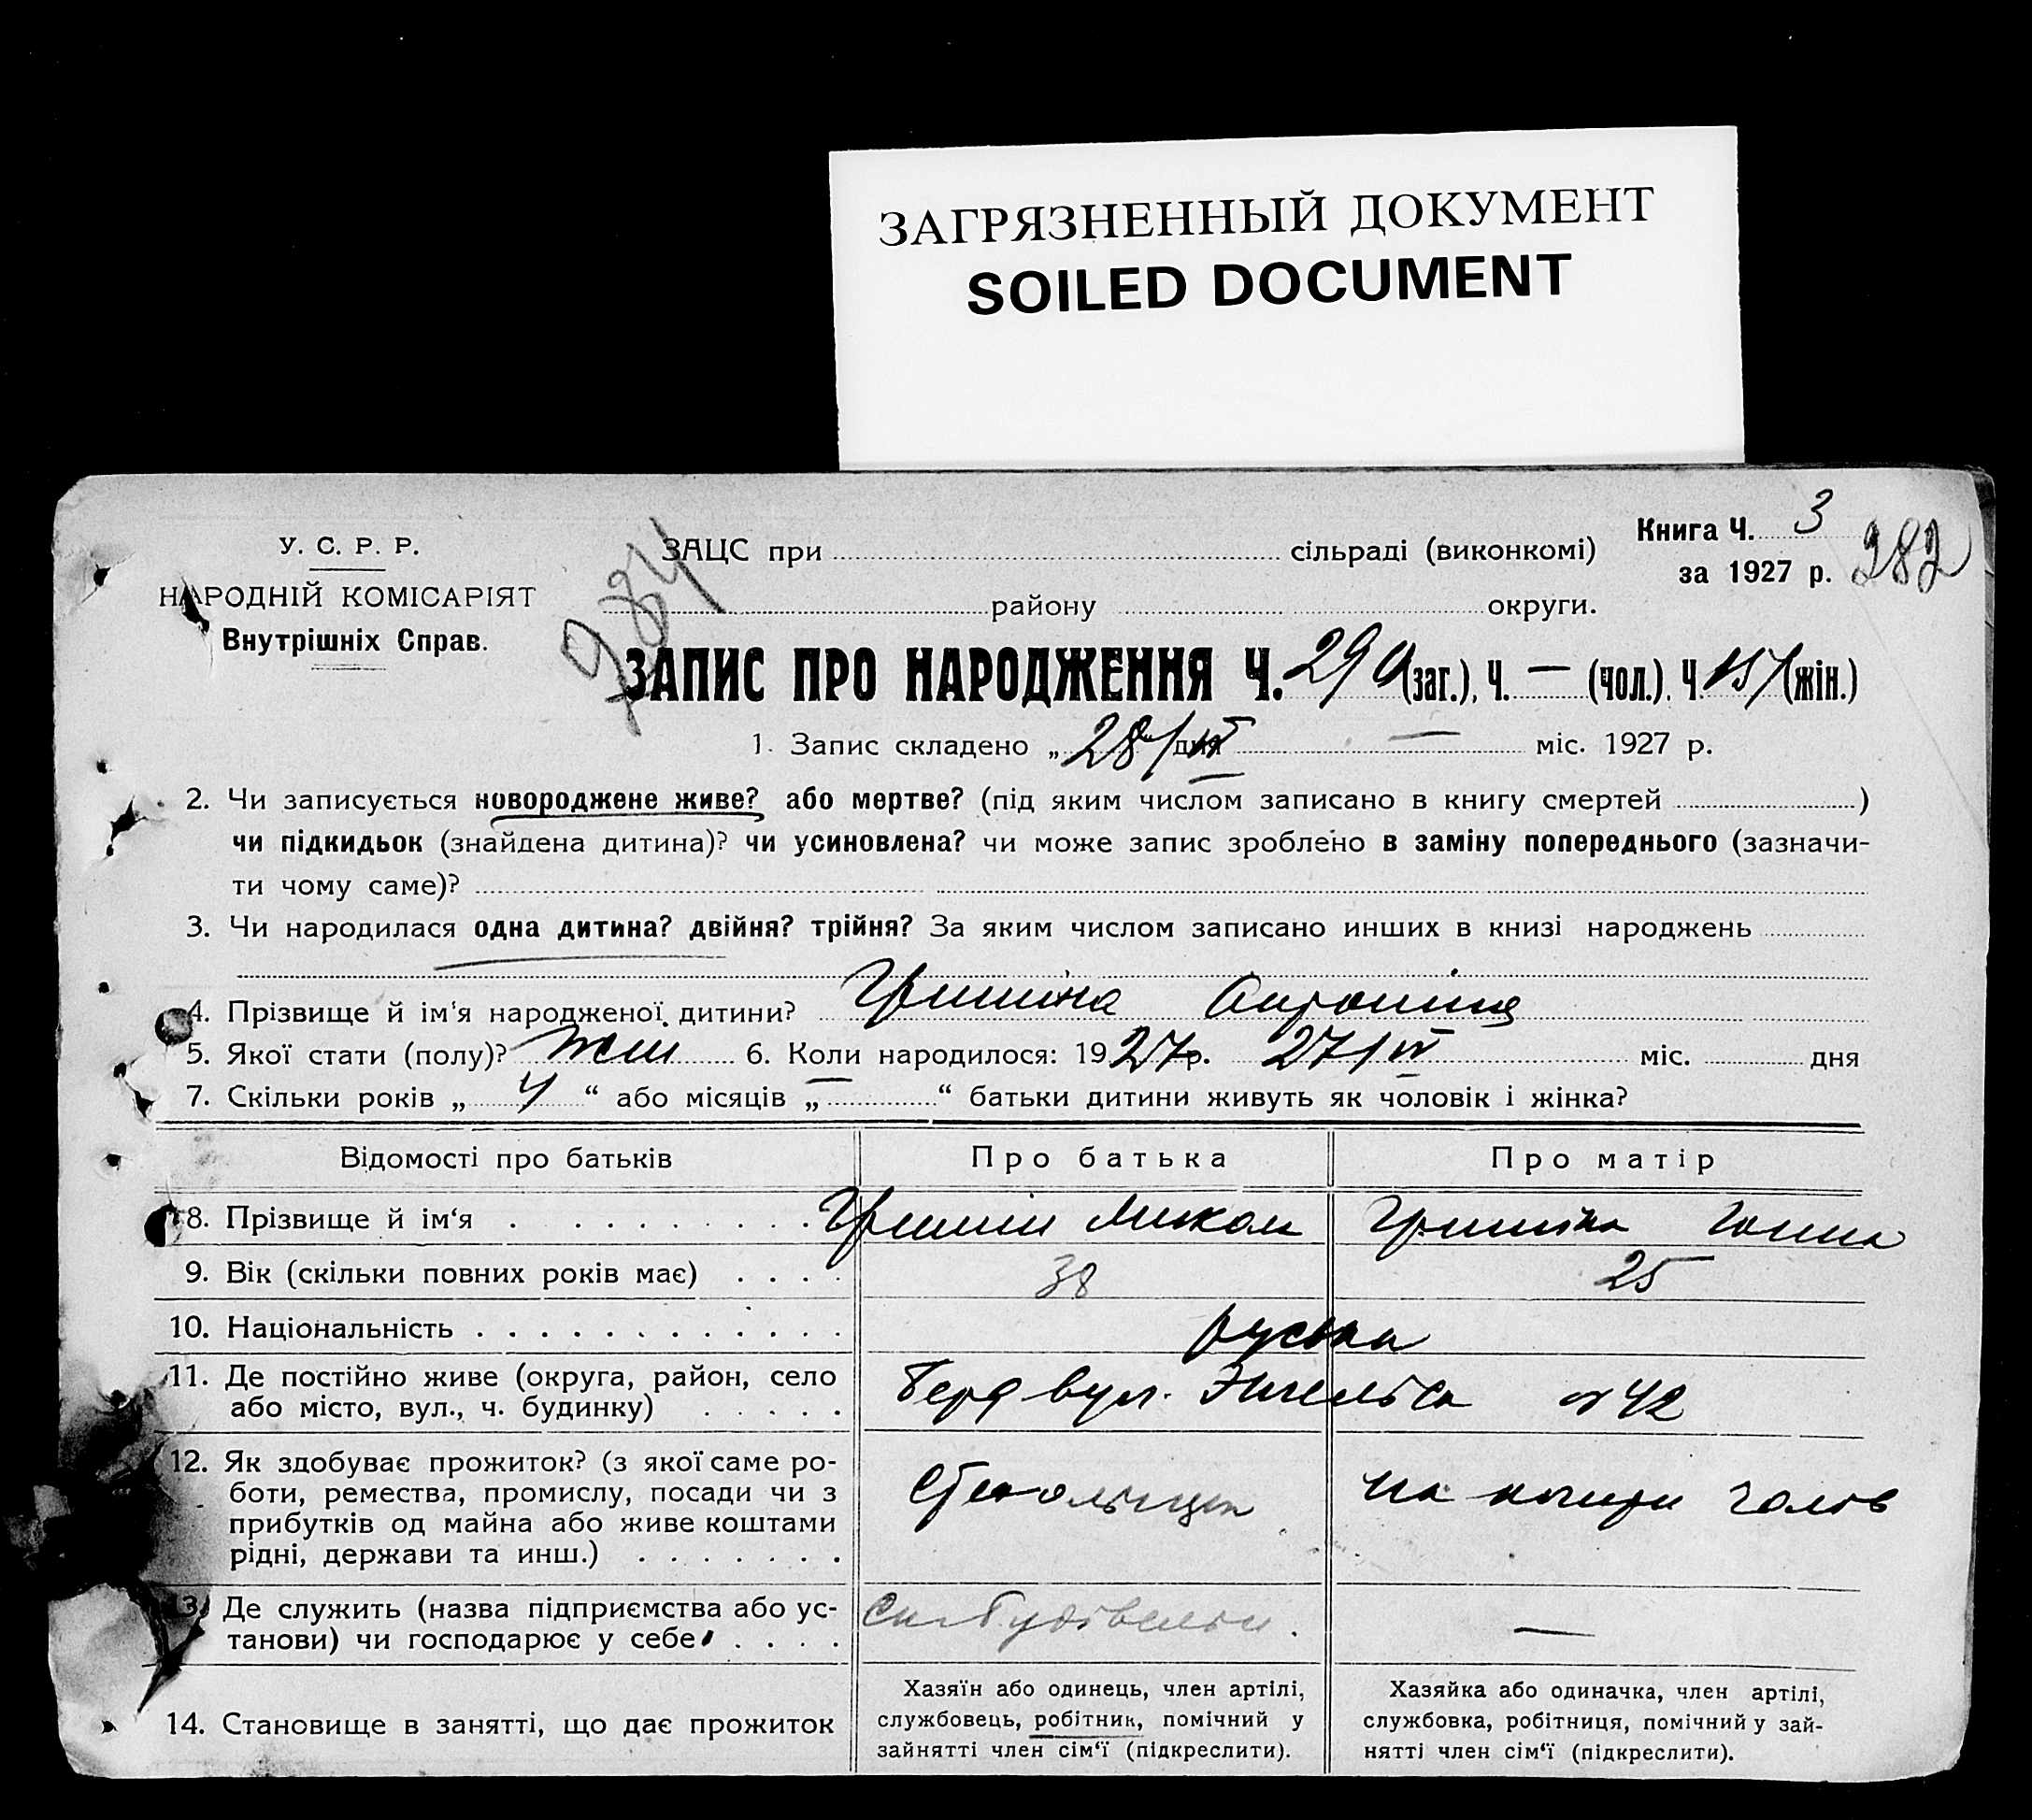 ЗАГРЯЗНЕННЫЙ ДОКУМЕНТ
SOILED DOCUMENT
Книга Ч. 3
282
за 1927 р.
У. С. Р. Р.
НАРОДНІЙ КОМІСАРІЯТ
Внутрішніх Справ.
ЗАЦС при сільраді (виконкомі)
району округи.
ЗАПИС ПРО НАРОДЖЕННЯ Ч. (заг.), Ч. — (чол.). Ч. 151 (жін.)
1. Запис складено „28/IV дня — міс. 1927 р.
2. Чи записується новороджене живе? або мертве? (під яким числом записано в книгу смертей )
чи підкидьок (знайдена дитина)? чи усиновлена? чи може запис зроблено в заміну попереднього (зазначи-
ти чому саме)?
3. Чи народилася одна дитина? двійня? трійня? За яким числом записано инших в книзі народжень
4. Прізвище й ім'я народженої дитини? Гришина
5. Якої стати (полу)? жін 6. Коли народилося: 1927р. 27/IV міс. дня
7. Скільки років „ 4 “ або місяців „ — “ батьки дитини живуть як чоловік і жінка?
Відомості про батьків Про батька Про матір
8. Прізвище й ім'я Гришин Микола Гришина Ганна
9. Вік (скільки повних років має) 38 25
10. Національність руська
11. Де постійно живе (округа, район, село
або місто, вул., ч. будинку) Берд вул. Энгельса 42
12. Як здобуває прожиток? (з якої саме ро-
боти, ремества, промислу, посади чи з
прибутків од майна або живе коштами
рідні, держави та инш.) Стекольщик на кошти голов
13. Де служить (назва підприємства або ус-
танови) чи господарює у себе —
14. Становище в занятті, що дає прожиток
Хазяїн або одинець, член артілі,
службовець, робітник, помічний у
зайнятті член сім'ї (підкреслити).
Хазяйка або одиначка, член артілі,
службовка, робітниця, помічний у зай-
нятті член сім'ї (підкреслити).